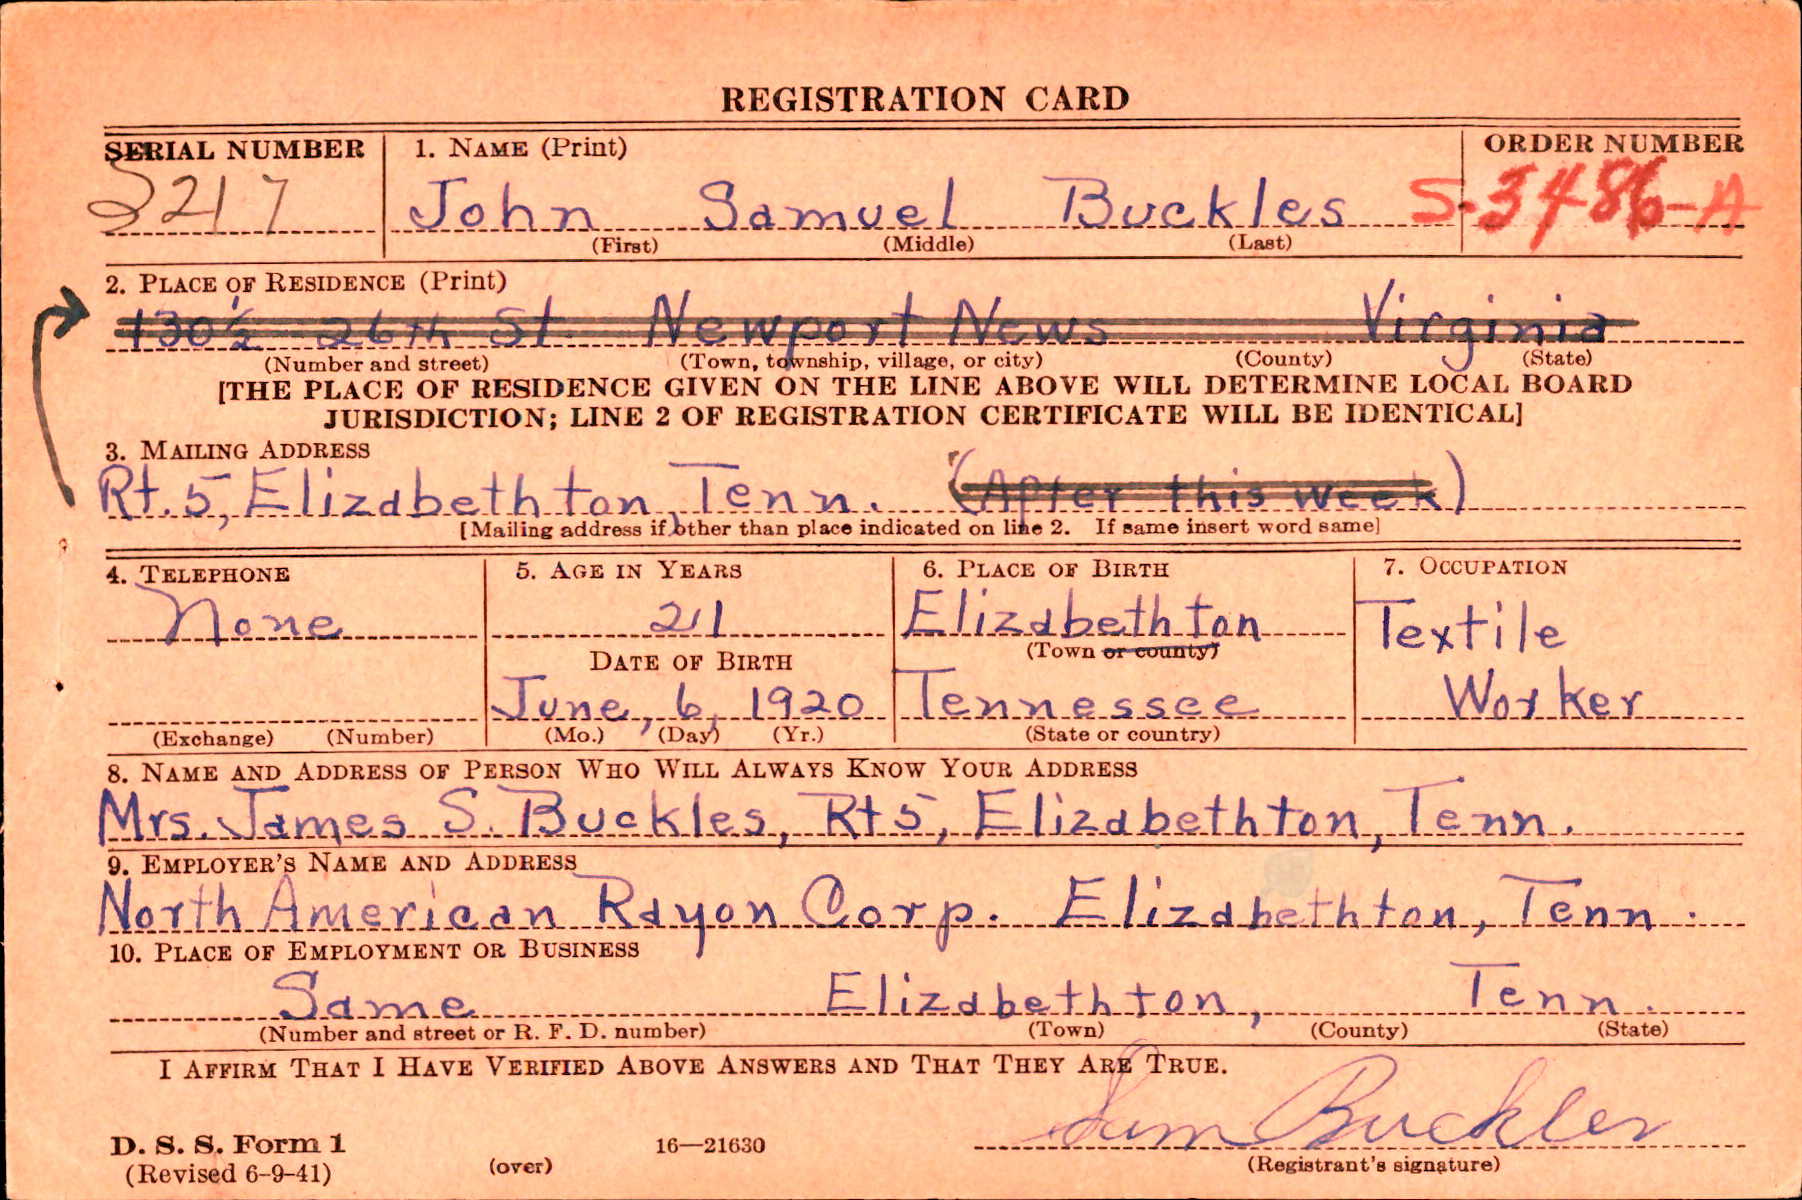 REGISTRATION CARD
SERIAL NUMBER 1. NAME (Print) ORDER NUMBER
S217 John Samuel Buckles S-3486-A
(First) (Middle) (Last)
2. PLACE OF RESIDENCE (Print)
130½ 26th St. Newport News Virginia
(Number and street) (Town, township, village, or city) (County) (State)
[THE PLACE OF RESIDENCE GIVEN ON THE LINE ABOVE WILL DETERMINE LOCAL BOARD
JURISDICTION; LINE 2 OF REGISTRATION CERTIFICATE WILL BE IDENTICAL]
3. MAILING ADDRESS
Rt. 5, Elizabethton, Tenn. (After this week)
[Mailing address if other than place indicated on line 2. If same insert word same]
4. TELEPHONE 5. AGE IN YEARS 6. PLACE OF BIRTH 7. OCCUPATION
None 21 Elizabethton Textile
DATE OF BIRTH (Town or county)
June, 6, 1920 Tennessee Worker
(Exchange) (Number) (Mo.) (Day) (Yr.) (State or country)
8. NAME AND ADDRESS OF PERSON WHO WILL ALWAYS KNOW YOUR ADDRESS
Mrs. James S. Buckles, Rt 5, Elizabethton, Tenn.
9. EMPLOYER'S NAME AND ADDRESS
North American Rayon Corp. Elizabethton, Tenn.
10. PLACE OF EMPLOYMENT OR BUSINESS
Same Elizabethton, Tenn.
(Number and street or R. F. D. number) (Town) (County) (State)
I AFFIRM THAT I HAVE VERIFIED ABOVE ANSWERS AND THAT THEY ARE TRUE.
Sam Buckles
D. S. S. Form 1 16—21630
(Revised 6-9-41) (over) (Registrant's signature)